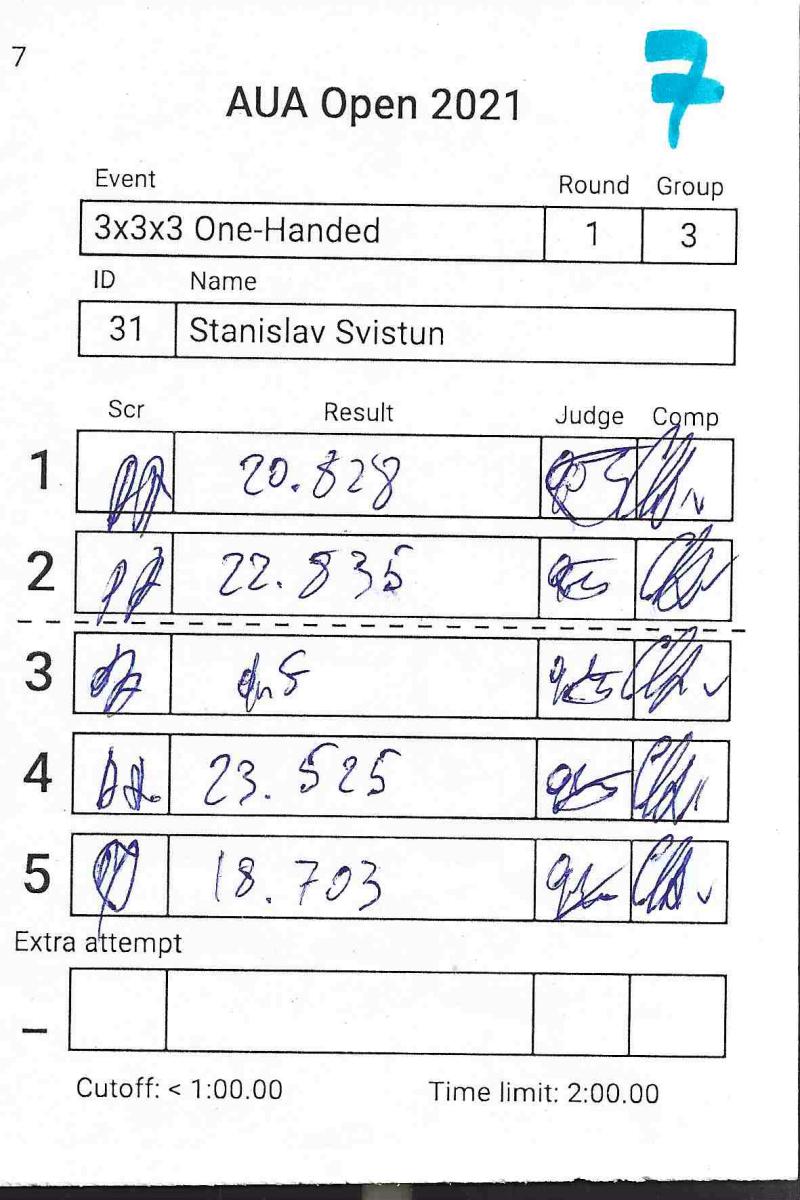 7
7
AUA Open 2021
Event Round Group
3x3x3 One-Handed 1 3
ID Name
31 Stanislav Svistun
Scr Result Judge Comp
1 20.828
2 22.835
3
4 23.525
5 18.703
Extra attempt
_
Cutoff: < 1:00.00 Time limit: 2:00.00